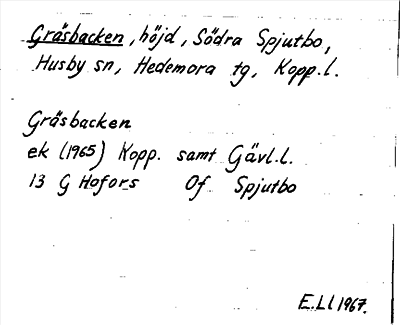 Gräsbacken, höjd, Södra Spjutbo,
Husby sn, Hedemora tg, Kopp.l.
Gräsbacken
ek (1965) Kopp. samt Gävl.l.
13 G Hofors Of Spjutbo
E.Ll 1967.